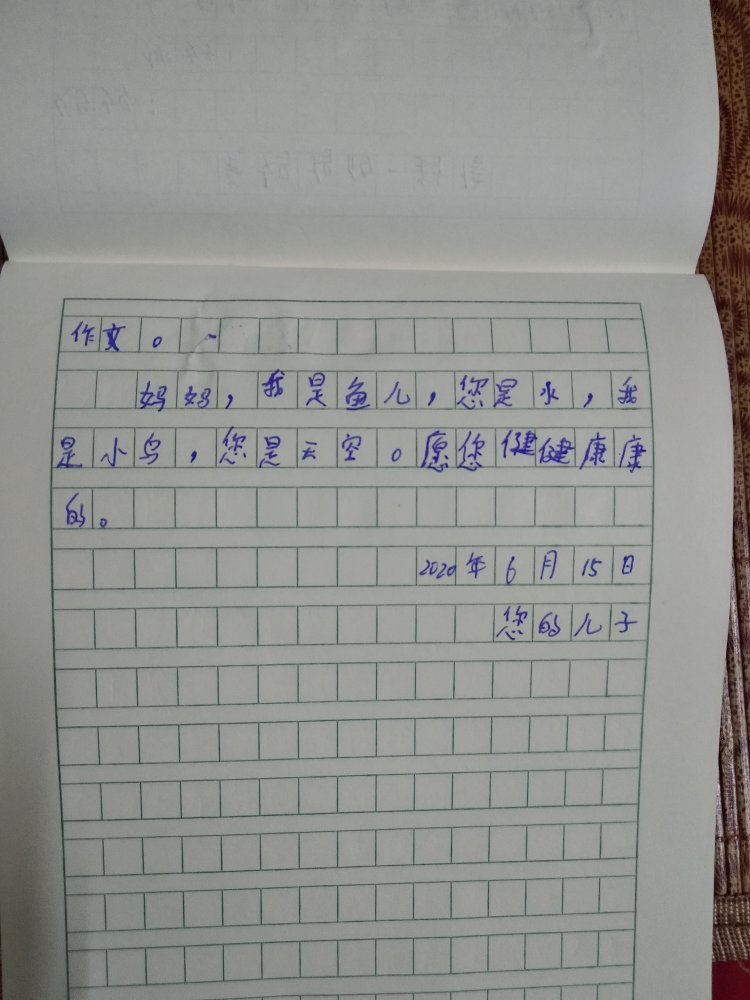 作文。
妈妈，我是鱼儿，您是水，我
是小鸟，您是天空。愿您健健康康
的。
2020年6月15日
您的儿子